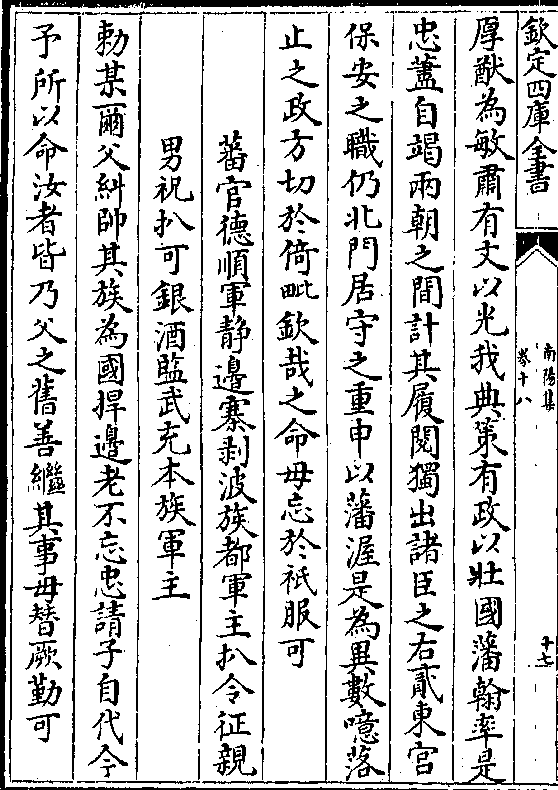 欽定四庫全書
南陽集
卷十八
十七
厚猷為敏肅有文以光我典策有政以壯國藩翰率是
忠藎自竭兩朝之間計其履閱獨出諸臣之右貳東宮
保安之職仍北門居守之重申以藩渥是為異數噫落
止之政方切於倚毗欽哉之命毋忘於祗服可
蕃官德順軍静邊寨剥波族都軍主扒令征親
男祝扒可銀酒監武充本族軍主
勅某爾父糾帥其族為國捍邊老不忘忠請子自代今
予所以命汝者皆乃父之舊善繼其事毋替厥勤可